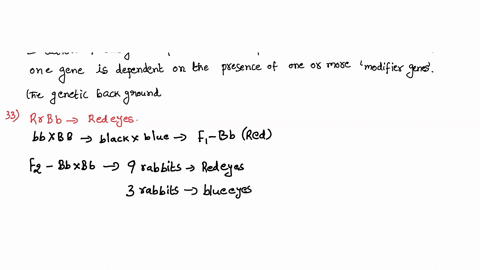 one gene is dependent on the presence of one or more 'modifier genes'.
genetic background
33) RrBb → Red eyes.
bb X BB → black x blue → F1 - Bb (Red)
F2 - Bb x Bb → 9 rabbits → Red eyes
3 rabbits → blue eyes